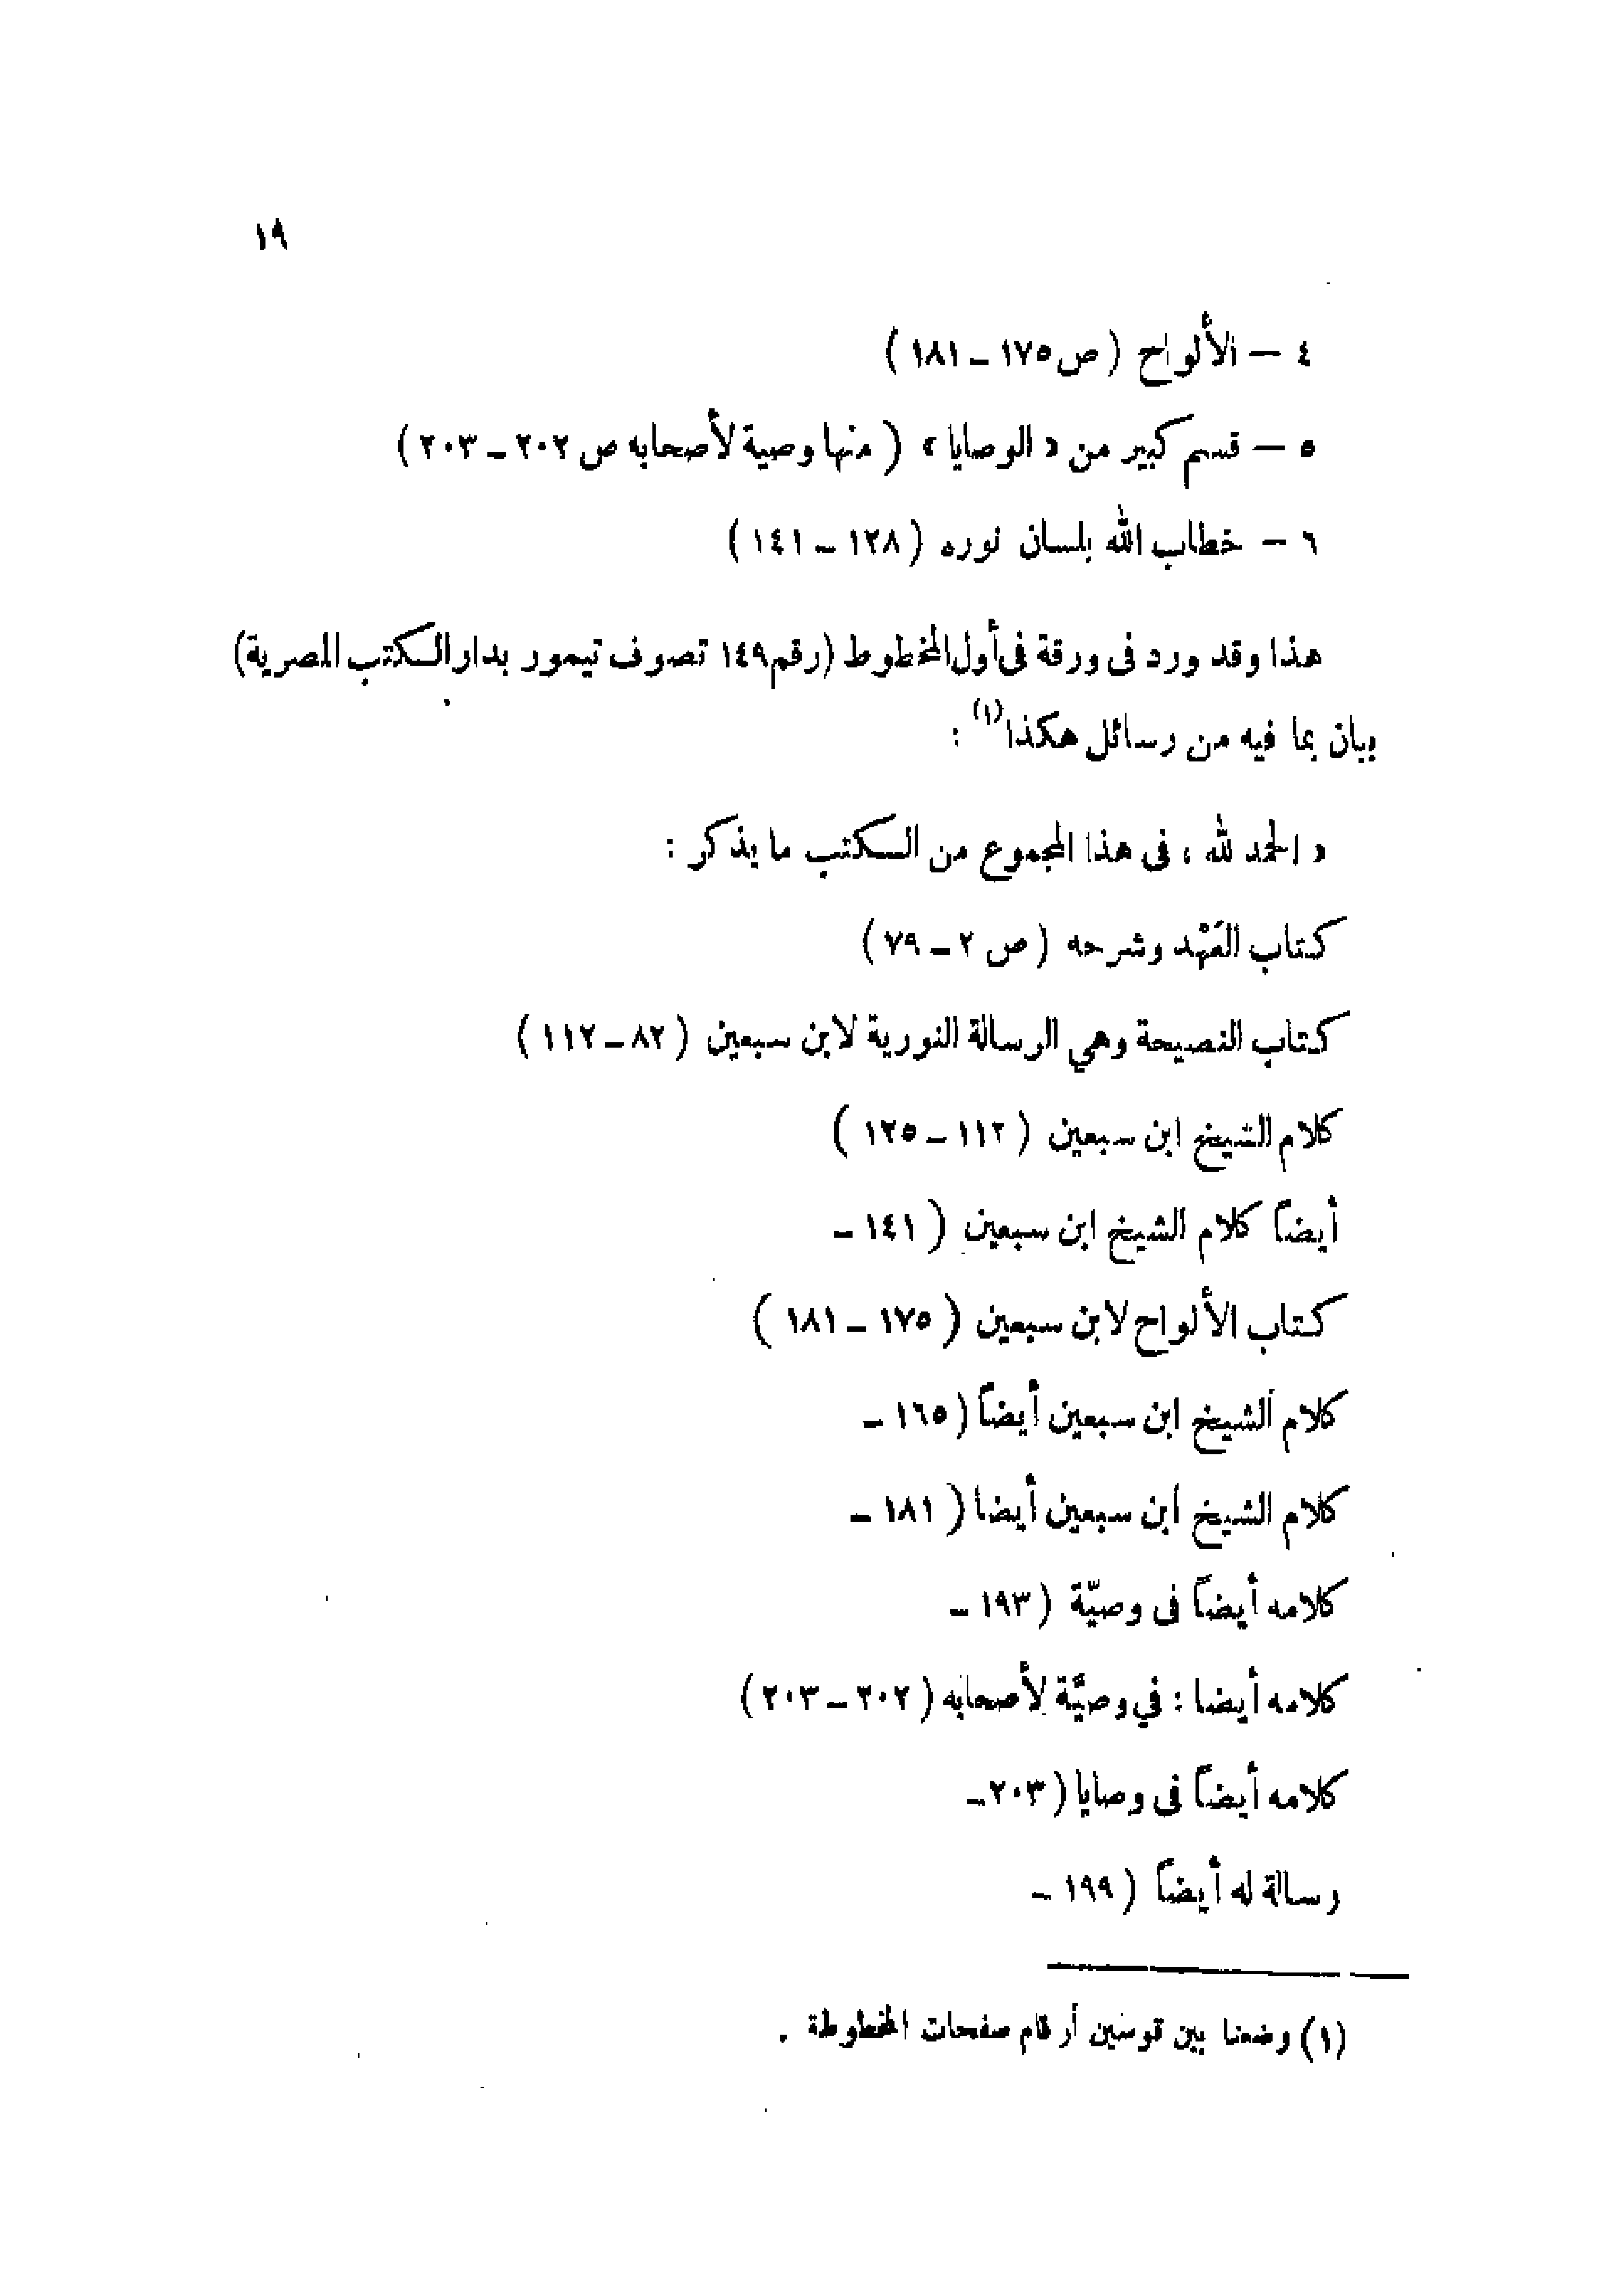 ١٩
٤ – الألواح ( ص ١٧٥ – ١٨١ )
٥ – قسم كبير من « الوصايا » ( منها وصية لأصحابه ص ٢٠٢ – ٢٠٣ )
٦ – خطاب الله بلسان نوره ( ١٣٨ – ١٤١ )
هذا وقد ورد فى ورقة فى أول المخطوط (رقم ١٤٩ تصوف تيمور بدار الكتب المصرية)
بيان بما فيه من رسائل هكذا(١) :
« الحمد لله ، فى هذا المجموع من الكتب ما يذكر :
كتاب العَهْد وشرحه ( ص ٢ – ٧٩ )
كتاب النصيحة وهي الرسالة النورية لابن سبعين ( ٨٢ – ١١٢ )
كلام الشيخ ابن سبعين ( ١١٢ – ١٢٥ )
أيضاً كلام الشيخ ابن سبعين ( ١٤١ –
كتاب الألواح لابن سبعين ( ١٧٥ – ١٨١ )
كلام الشيخ ابن سبعين أيضاً ( ١٦٥ –
كلام الشيخ ابن سبعين أيضا ( ١٨١ –
كلامه أيضاً فى وصيّة ( ١٩٣ –
كلامه أيضا : في وصيَّة لأصحابه ( ٢٠٢ – ٢٠٣ )
كلامه أيضاً فى وصايا ( ٢٠٣ –
رسالة له أيضاً ( ١٩٩ –
(١) وضعنا بين قوسين أرقام صفحات المخطوطة .